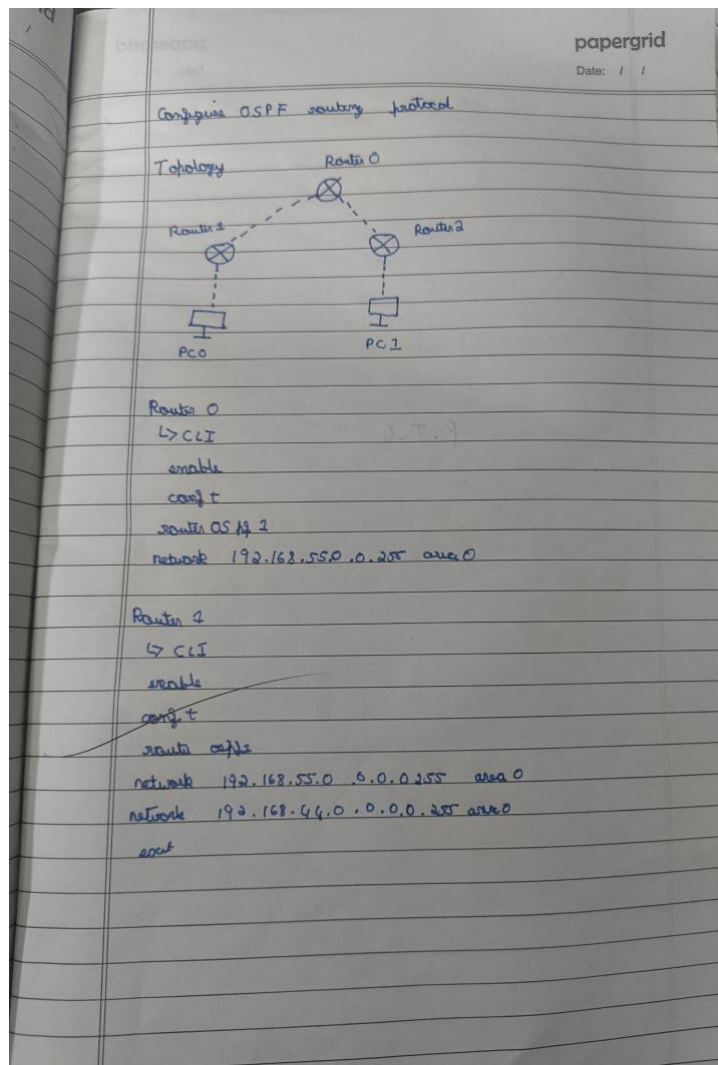 papergrid
Date: / /
Configure OSPF routing protocol
Topology
Router 0
Router 1
Router 2
PC0
PC1
Router 0
↳ CLI
enable
conf t
router OSPf 1
network 192.168.55.0 .0.255 area 0
Router 1
↳ CLI
enable
conf t
route ospf1
network 192.168.55.0 .0.0.0255 area 0
network 192.168.44.0 .0.0.0.255 area 0
exit